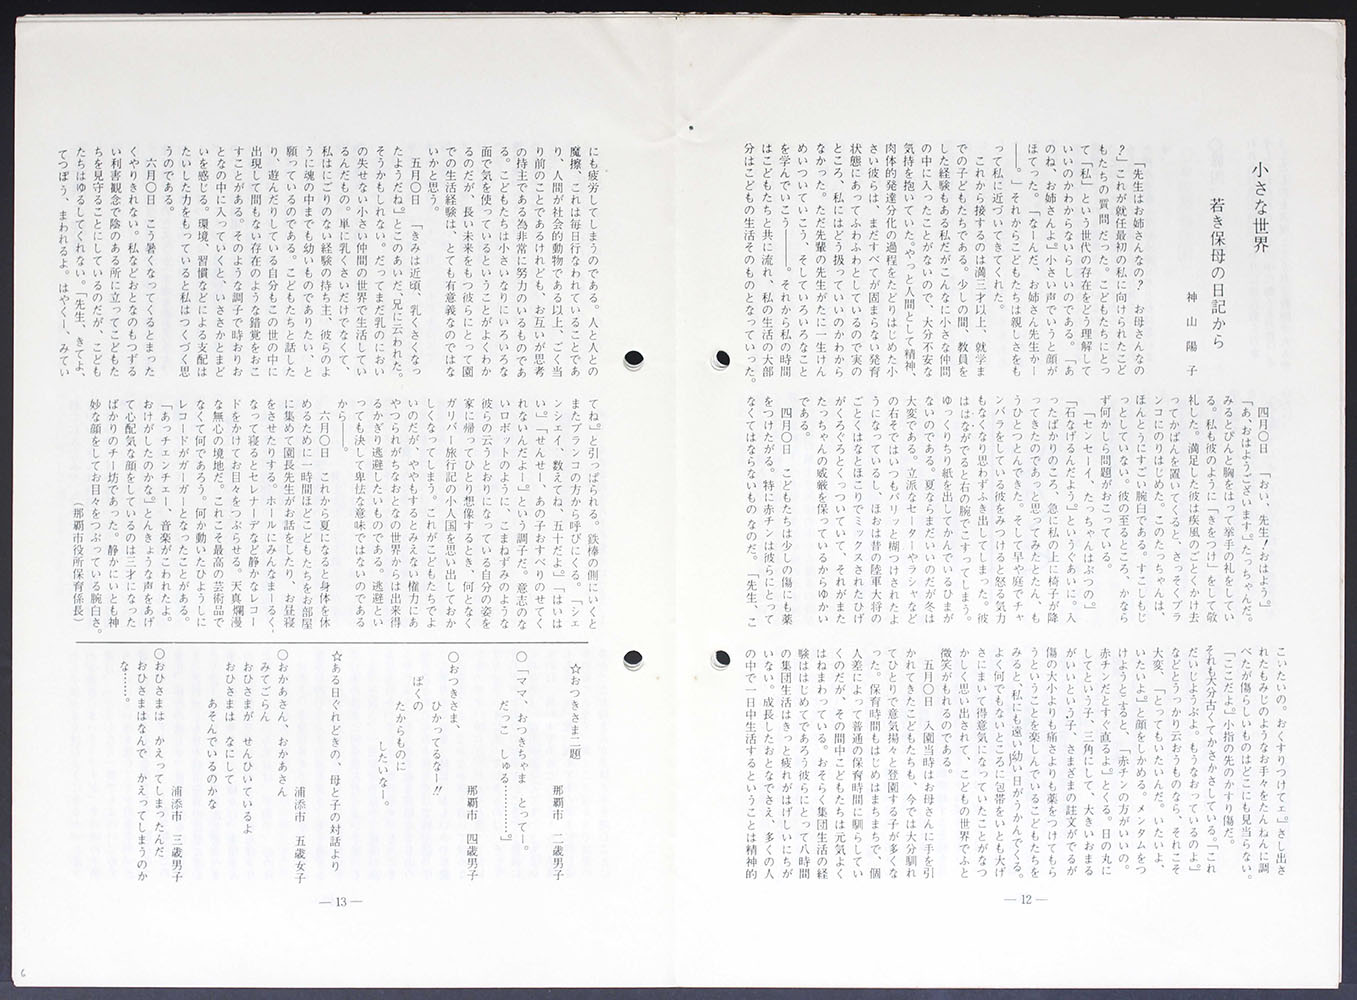 小さな世界
若き保母の日記から
神山陽子
「先生はお姉さんなの？　お母さんなの
？」これが就任最初の私に向けられたこど
もたちの質問だった。こどもたちにとっ
て「私」という世代の存在をどう理解して
いいのかわからないらしいのである。「あ
のね、お姉さんよ』小さい声でいうと顔が
ほてった。「なーんだ、お姉さん先生か―
――。」それからこどもたちは親しさをも
って私に近づいてきてくれた。
これから接するのは満三才以上、就学ま
での子どもたちである。少しの間、教員を
した経験もある私だがこんなに小さな仲間
の中に入ったことがないので、大分不安な
気持を抱いていた。やっと人間として精神、
肉体的発達分化の過程をたどりはじめた小
さい彼らは、まだすべてが固まらない発育
状態にあってふわふわとしているので実の
ところ、私にはどう扱っていいのかわから
なかった。ただ先輩の先生がたに一生けん
めいついていこう、そしていろいろなこと
を学んでいこう――。それから私の時間
はこどもたちと共に流れ、私の生活の大部
分はこどもの生活そのものとなっていった。
四月〇日　「おい、先生！おはよう』。
「あ、おはようございます』。たっちゃんだ。
みるとぴんと胸をはって挙手の礼をしてい
る。私も彼のように「きをつけ」をして敬
礼した。満足した彼は疾風のごとくかけ去
ってかばんを置いてくると、さっそくブラ
ンコにのりはじめた。このたっちゃんは、
ほんとうにすごい腕白である。すこしもじ
っとしていない。彼の至るところ、かなら
ず何かしら問題がおこっている。
「センセーイ、たっちゃんはぶつの』。
「石なげるんだよう』というぐあいに。入
ったばかりのころ、急に私の上に椅子が降
ってきたのであっと思ってみとたん、も
うひとつとんできた。そして早や庭でチャ
ンバラをしている彼をみつけると怒る気力
もなくなり思わずふき出してしまった。彼
ははながでると右の腕でこすってしまう。
ゆっくりちり紙を出してかんでいるひまが
ないのである。夏ならまだいいのだが冬は
大変である。立派なセーターやラシャなど
の右そではいつもパリッと糊づけされたよ
うになっているし、ほおは昔の陸軍大将の
ごとくはなとほこりでミックスされたひげ
がくろぐろとくっついていて、それがまた
たっちゃんの威厳を保っているからゆかい
である。
四月〇日　こどもたちは少しの傷にも薬
をつけたがる。特に赤チンは彼らにとって
なくてはならないものなのだ。「先生、こ
こいたいの。おくすりつけてェ』。さし出さ
れたもみじのようなお手々をたんねんに調
べたが傷らしいものはどこにも見当らない。
「ここだよ』。小指の先のかすり傷だ。
それも大分古くてかさかさしている。「これ
だいじょうぶよ。もうなおっているのよ』。
などとうっかり云おうものなら、それこそ
大変、「とってもいたいんだ。いたいよ、
いたいよ』。と顔をしかめる。メンタムをつ
けようとすると、「赤チンの方がいいの。
赤チンだとすぐ直るよ』とくる。日の丸に
してという子、三角にして、大きいおまる
がいいという子、さまざまの註文がでるが
傷の大小よりも痛さよりも薬をつけてもら
うということを楽しんでいるこどもたちを
みると、私にも遠い幼い日がうかんでくる。
よく何でもないところに包帯をいとも大げ
さにまいて得意気になっていたことがなつ
かしく思い出されて、こどもの世界でふと
微笑がもれるのである。
五月〇日　入園当時はお母さんに手を引
かれてきたこどもたちも、今では大分馴れ
てひとりで意気揚々と登園する子が多くな
った。保育時間もはじめはまちまちで、個
人差によって普通の保育時間に馴らしてい
くのだが、その間中こどもたちは元気よく
はねまわっている。おそらく集団生活の経
験ははじめてであろう彼らにとって八時間
の集団生活はきっと疲れがはげしいにちが
いない。成長したおとなでさえ、多くの人
の中で一日中生活するということは精神的
― 12 ―
にも疲労してしまうのである。人と人との
魔擦、これは毎日行なわれていることであ
り、人間が社会的動物である以上、ごく当
り前のことであるけれども、お互いが思考
の持主である為非常に努力のいるものであ
る。こどもたちは小さいなりにいろいろな
面で気を使っているということがよくわか
るのだが、長い未来をもつ彼らにとって園
での生活経験は、とても有意義なのではな
いかと思う。
五月〇日　「きみは近頃、乳くさくなっ
たようだね』。とこのあいだ、兄に云われた。
そうかもしれない。だってまだ乳のにおい
の失せない小さい仲間の世界で生活してい
るんだもの。単に乳くさいだけでなくて、
私はにごりのない経験の持ち主、彼らのよ
うに魂の中までも幼いものでありたい、と
願っているのである。こどもたちと話した
り、遊んだりしている自分もこの世の中に
出現して間もない存在のような錯覚をおこ
すことがある。そのような調子で時おりお
となの中に入っていくと、いささかとまど
いを感じる。環境、習慣などによる支配は
たいした力をもっていると私はつくづく思
うのである。
六月〇日　こう暑くなってくるとまった
くやりきれない。私などおとなのもつずる
い利害観念で陰のある所に立ってこどもた
ちを見守ることにしているのだが、こども
たちはゆるしてくれない。「先生、きてよ、
てつぼう、まわれるよ。はやくー、みてい
てね』と引っぱられる。鉄棒の側にいくと
またブランコの方から呼びにくる。「シェ
ンシェイ、数えてね、五十だよ』。「はいは
い』。「せんせー、あの子おすべりのせてく
れないんだよー』という調子だ。意志のな
いロボットのように、こまねずみのような
彼らの云うとおりになっている自分の姿を
家に帰ってひとり想像するとき、何となく
ガリバー旅行記の小人国を思い出しておか
しくなってしまう。これがこどもたちでよ
いのだが、ややもするとみえない権力にあ
やつられがちなおとなの世界からは出来得
るかぎり逃避したいものである。逃避とい
っても決して卑怯な意味ではないのである
から――。
六月〇日　これから夏になると身体を休
めるために一時間ほどこどもたちをお部屋
に集めて園長先生がお話をしたり、お昼寝
をさせたりする。ホールにみんなまーるく
なって寝るとセレナーデなど静かなレコー
ドをかけてお目々をつぶらせる。天真爛漫
な無心の境地だ。これこそ最高の芸術品で
なくて何であろう。何か動いたひようしに
レコードがガーガーとなったことがある。
「あっチェンチェー、音楽がこわれたよ。
おけがしたのかな』とんきょうな声をあげ
て心配気な顔をしているのは三才になった
ばかりのチー坊であった。静かにいとも神
妙な顔をしてお目々をつぶっている腕白さ。
（那覇市役所保育係長）
☆おつきさま二題
那覇市　二歳男子
〇「ママ、おつきちゃま　とってー。
だっこ　しゅる………。」
那覇市　四歳男子
〇おつきさま、
ひかってるなー!!
ぼくの
たからものに
したいなー。
☆ある日ぐれどきの、母と子の対話より
浦添市　五歳女子
〇おかあさん、おかあさん
みてごらん
おひさまが　せんひいているよ
おひさまは　なにして
あそんでいるのかな
浦添市　三歳男子
〇おひさまは　かえってしまったんだ
おひさまはなんで　かえってしまうのか
な………。
― 13 ―
6